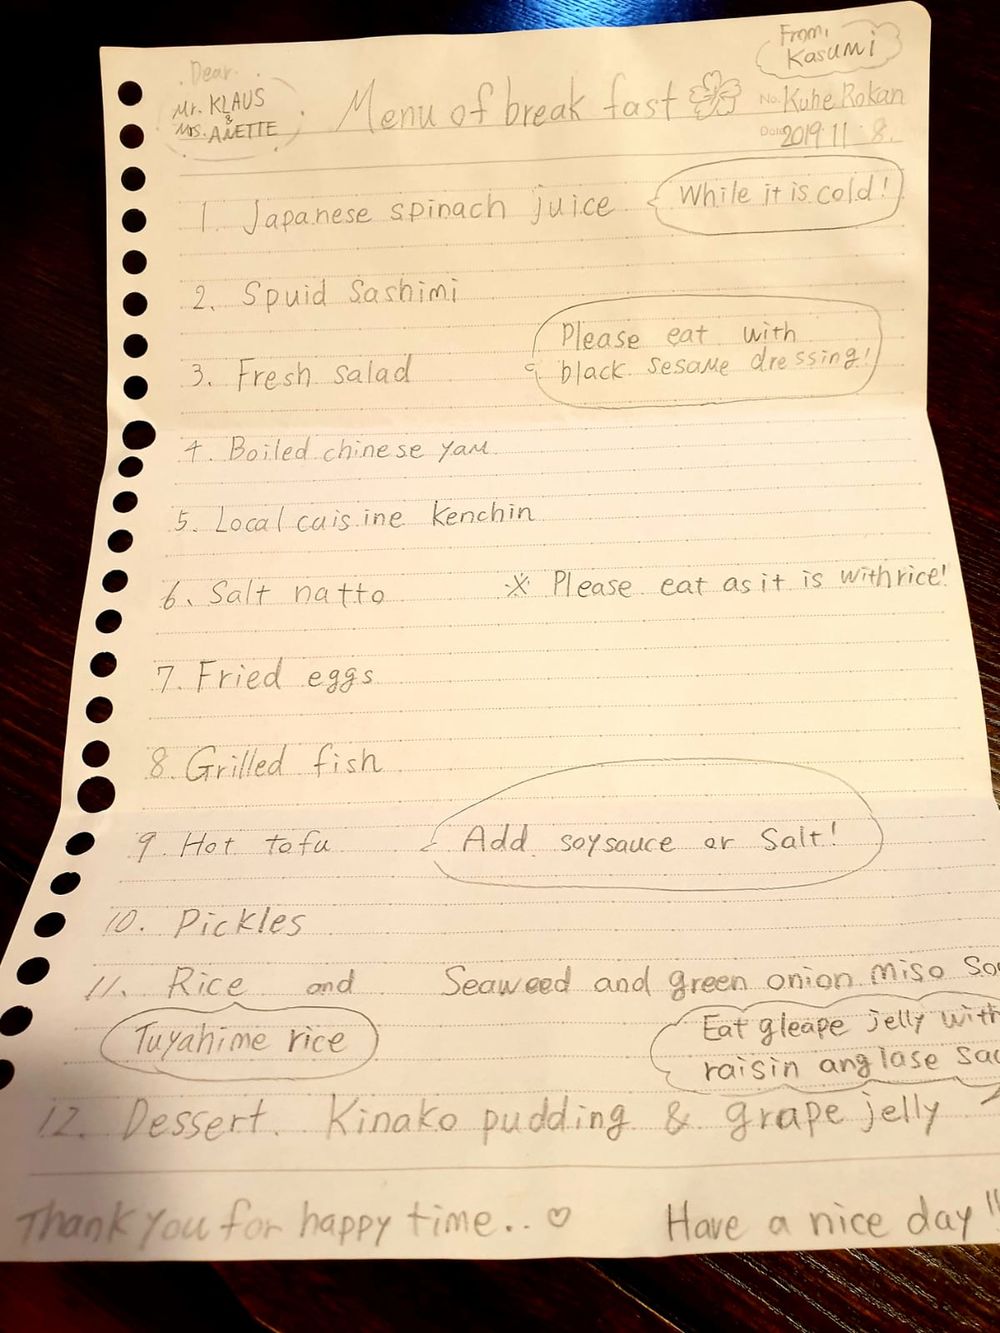 Dear
Mr. KLAUS
&
Mrs. ANETTE
Menu of break fast
From,
Kasumi
No. Kuhe Rokan
Date 2019 11 8.
1. Japanese spinach juice
While it is cold!
2. Spuid Sashimi
3. Fresh salad
Please eat with
black sesame dressing!
4. Boiled chinese yam
5. Local cuisine kenchin
6. Salt natto ※ Please eat as it is with rice!
7. Fried eggs
8. Grilled fish
9. Hot tofu
Add soysauce or Salt!
10. Pickles
11. Rice and Seaweed and green onion miso
Tuyahime rice
Eat gleape jelly with
raisin anglase
12. Dessert. Kinako pudding & grape jelly
Thank you for happy time.. ♡ Have a nice day!!